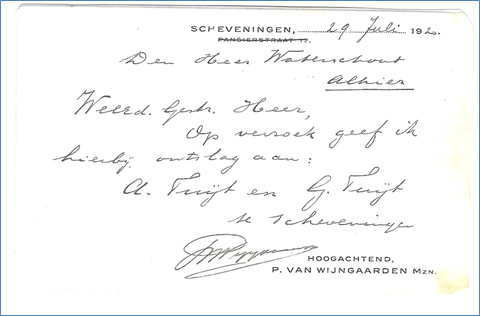 SCHEVENINGEN, 29 Juli 1920.
PANSIERSTRAAT
Den Heer Waterschout
Alhier
WelEd. Gestr. Heer,
Op verzoek geef ik
hierbij ontslag aan:
A. Tuijt en G. Tuijt
te Scheveningen
HOOGACHTEND,
P. VAN WIJNGAARDEN MZN.